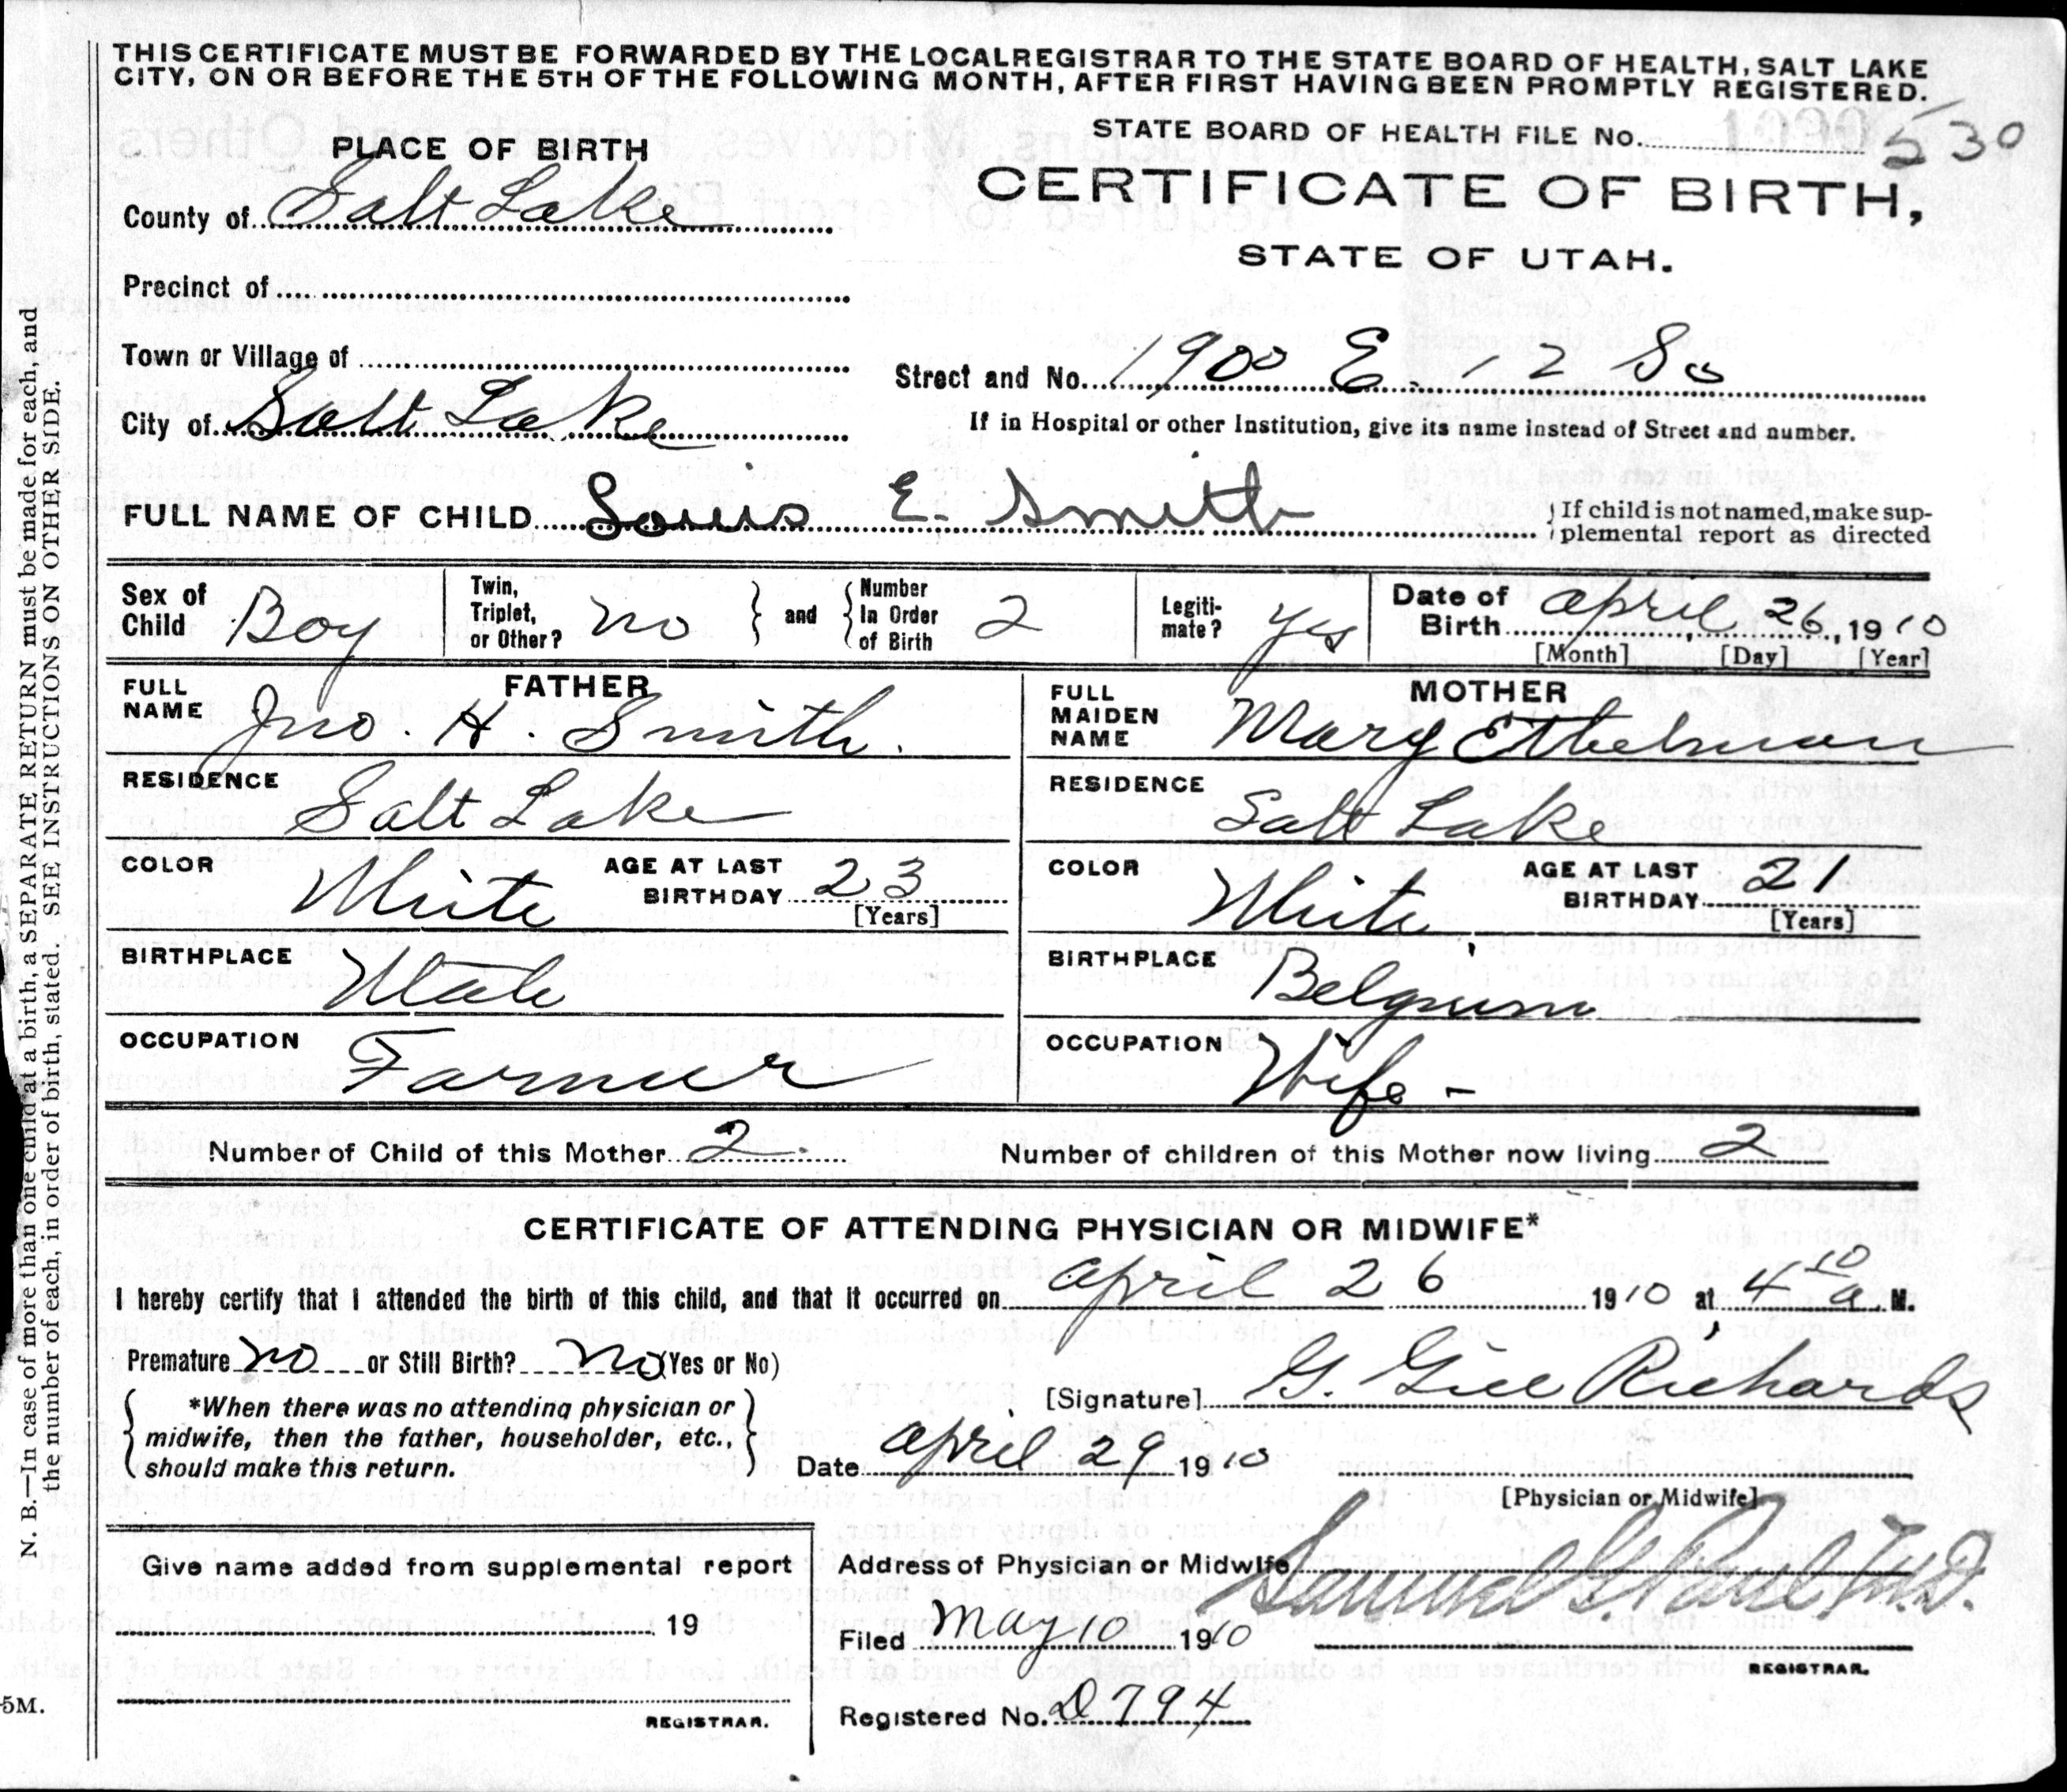 THIS CERTIFICATE MUST BE FORWARDED BY THE LOCAL REGISTRAR TO THE STATE BOARD OF HEALTH, SALT LAKE
CITY, ON OR BEFORE THE 5TH OF THE FOLLOWING MONTH, AFTER FIRST HAVING BEEN PROMPTLY REGISTERED.
STATE BOARD OF HEALTH FILE No. 530
PLACE OF BIRTH
CERTIFICATE OF BIRTH,
STATE OF UTAH.
County of Salt Lake
Precinct of
Town or Village of
Street and No. 1900 E. 12 So
City of Salt Lake
If in Hospital or other Institution, give its name instead of Street and number.
FULL NAME OF CHILD Louis E. Smith
If child is not named, make sup-
plemental report as directed
Sex of Child Boy
Twin, Triplet, or Other? no
and
Number In Order of Birth 2
Legiti-mate? yes
Date of Birth April 26, 1910
[Month] [Day] [Year]
FATHER
FULL NAME Jno. H. Smith.
RESIDENCE Salt Lake
COLOR White
AGE AT LAST BIRTHDAY 23
[Years]
BIRTHPLACE Utah
OCCUPATION Farmer
MOTHER
FULL MAIDEN NAME Mary Ethelman
RESIDENCE Salt Lake
COLOR White
AGE AT LAST BIRTHDAY 21
[Years]
BIRTHPLACE Belgium
OCCUPATION Wife -
Number of Child of this Mother 2.
Number of children of this Mother now living 2
CERTIFICATE OF ATTENDING PHYSICIAN OR MIDWIFE*
I hereby certify that I attended the birth of this child, and that it occurred on April 26 1910 at 4 10 a M.
Premature no or Still Birth? no (Yes or No)
[Signature] G. Gill Richards
*When there was no attending physician or
midwife, then the father, householder, etc.,
should make this return.
Date April 29 1910
[Physician or Midwife]
Give name added from supplemental report
19
REGISTRAR.
Address of Physician or Midwife
Samuel G. Paul M.D.
Filed May 10 1910
REGISTRAR.
Registered No. D794
N. B.—In case of more than one child at a birth, a SEPARATE RETURN must be made for each, and
the number of each, in order of birth, stated. SEE INSTRUCTIONS ON OTHER SIDE.
5M.